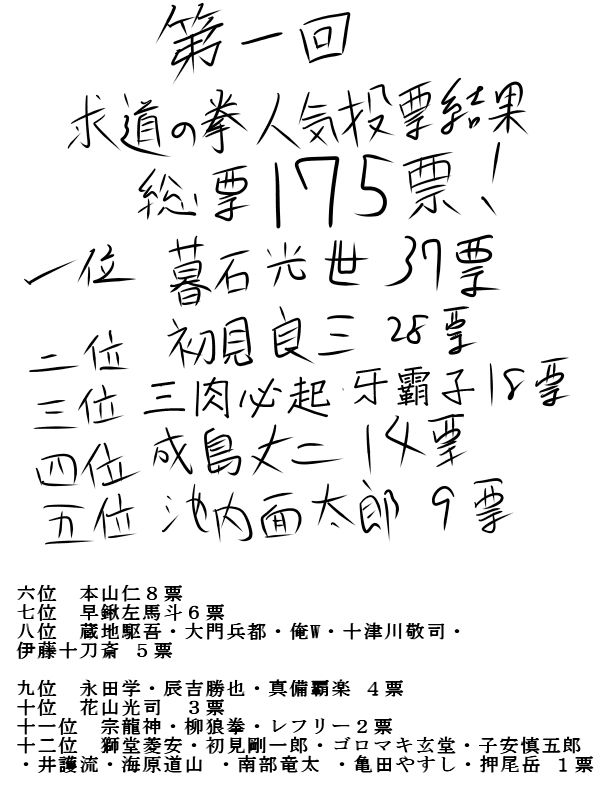 第一回
求道の拳人気投票結果
総票175票!
一位 暮石光世 37票
二位 初見良三 28票
三位 三肉必起・牙霸子18票
四位 成島丈二 14票
五位 池内面太郎 9票
六位 本山仁8票
七位 早鍬左馬斗6票
八位 蔵地駆吾・大門兵都・俺W・十津川敬司・
伊藤十刀斎 5票
九位 永田学・辰吉勝也・真備覇楽 4票
十位 花山光司 3票
十一位 宗龍神・柳狼拳・レフリー2票
十二位 獅堂菱安・初見剛一郎・ゴロマキ玄堂・子安慎五郎
・井護流・海原道山 ・南部竜太 ・亀田やすし・押尾岳 1票